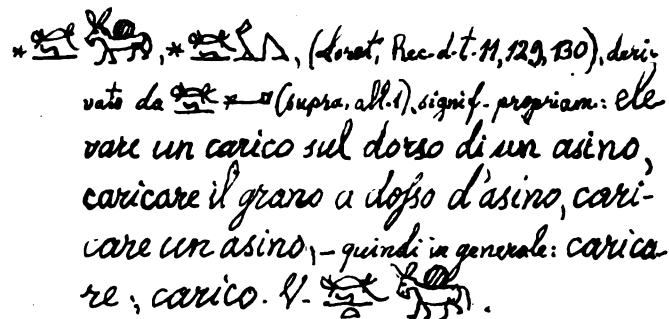 *, *, (Loret, Rec. d. t. 11, 129, 130), deri-
vato da (supra, all. 1), signif. propriam: ele
vare un carico sul dorso di un asino,
caricare il grano a dosso d'asino, cari-
care un asino, – quindi in generale: carica-
re; carico. V.